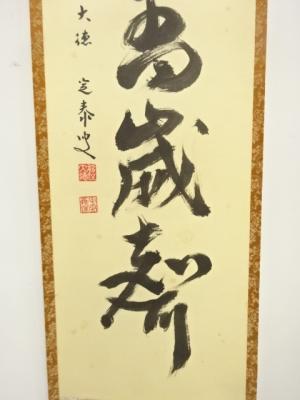 萬歳聲
大徳 定泰叟